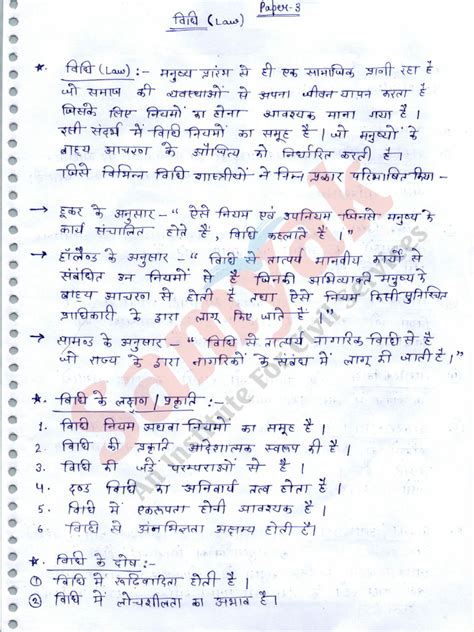 Paper-3
विधि (Law)
* विधि (Law) :- मनुष्य प्रारंभ से ही एक सामाजिक प्राणी रहा है
जो समाज की व्यवस्थाओं से अपना जीवन यापन करता है
जिसके लिए नियमों का होना आवश्यक माना गया है।
इसी संदर्भ में विधि नियमों का समूह है। जो मनुष्यों के
बाह्य आचरण के औचित्य को निर्धारित करती है।
जिसे विभिन्न विधि शास्त्रीयों ने निम्न प्रकार परिभाषित किया-
→ हूकर के अनुसार - "ऐसे नियम एवं उपनियम जिनसे मनुष्य के
कार्य संचालित होते हैं, विधि कहलाते हैं।"
→ हॉलैण्ड के अनुसार - "विधि से तात्पर्य मानवीय कार्यो से
संबंधित उन नियमों से है जिनकी अभिव्यक्ति मनुष्य के
बाह्य आचरण से होती है तथा ऐसे नियम किसी सुनिश्चित
प्राधिकारी के द्वारा लागू किए जाते हैं।"
→ सामण्ड के अनुसार - "विधि से तात्पर्य नागरिक विधि से है
जो राज्य के द्वारा नागरिकों के संबंध में लागू की जाती है"।
* विधि के लक्षण / प्रकृति :-
1. विधि नियम अथवा नियमों का समूह है।
2. विधि की प्रकृति आदेशात्मक स्वरूप की है।
3. विधि की जड़े परम्पराओं से है।
4. दण्ड विधि का अनिवार्य तत्व होता है।
5. विधि में एकरूपता होनी आवश्यक है।
6 विधि से अनभिज्ञता अक्षम्य होती है।
* विधि के दोष :-
① विधि में रूढिवादिता होती है।
② विधि में लोचशीलता का अभाव है।
Samyak
An Institute For Civil Services